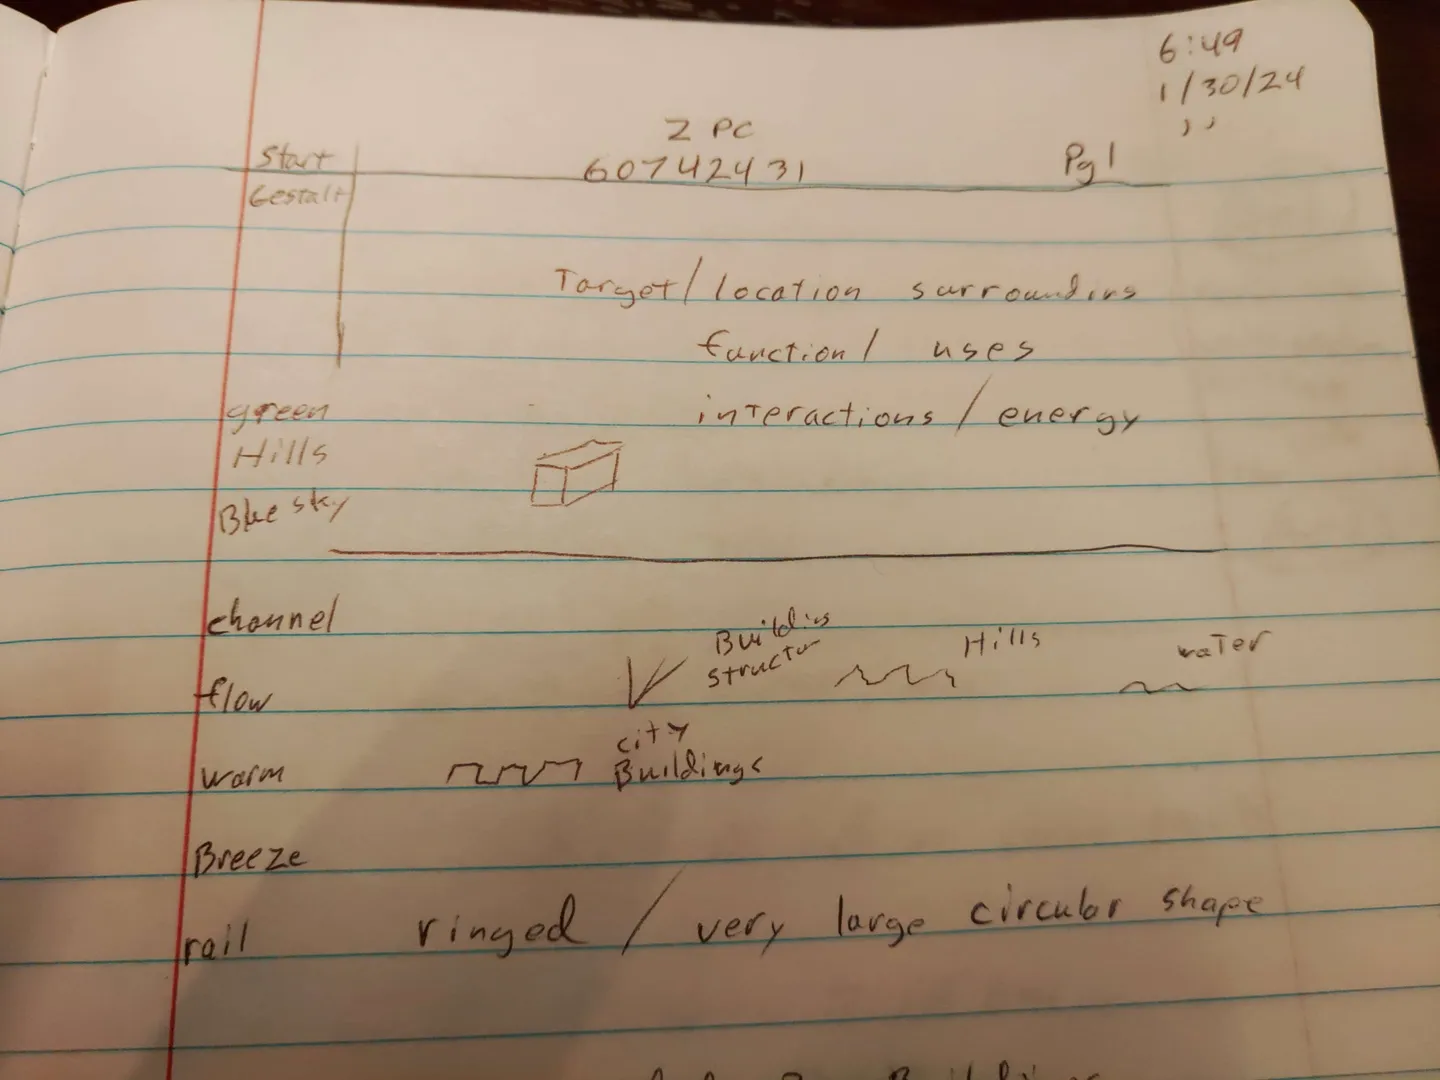 6:49
1/30/24
Z PC
60742431
Pg1
Start
Gestalt
Target/location surroundins
function/ uses
interactions/energy
green
Hills
Blue sky
channel
flow
Buildins
structur
Hills
water
warm
city
Buildings
Breeze
rail
ringed / very large circular shape